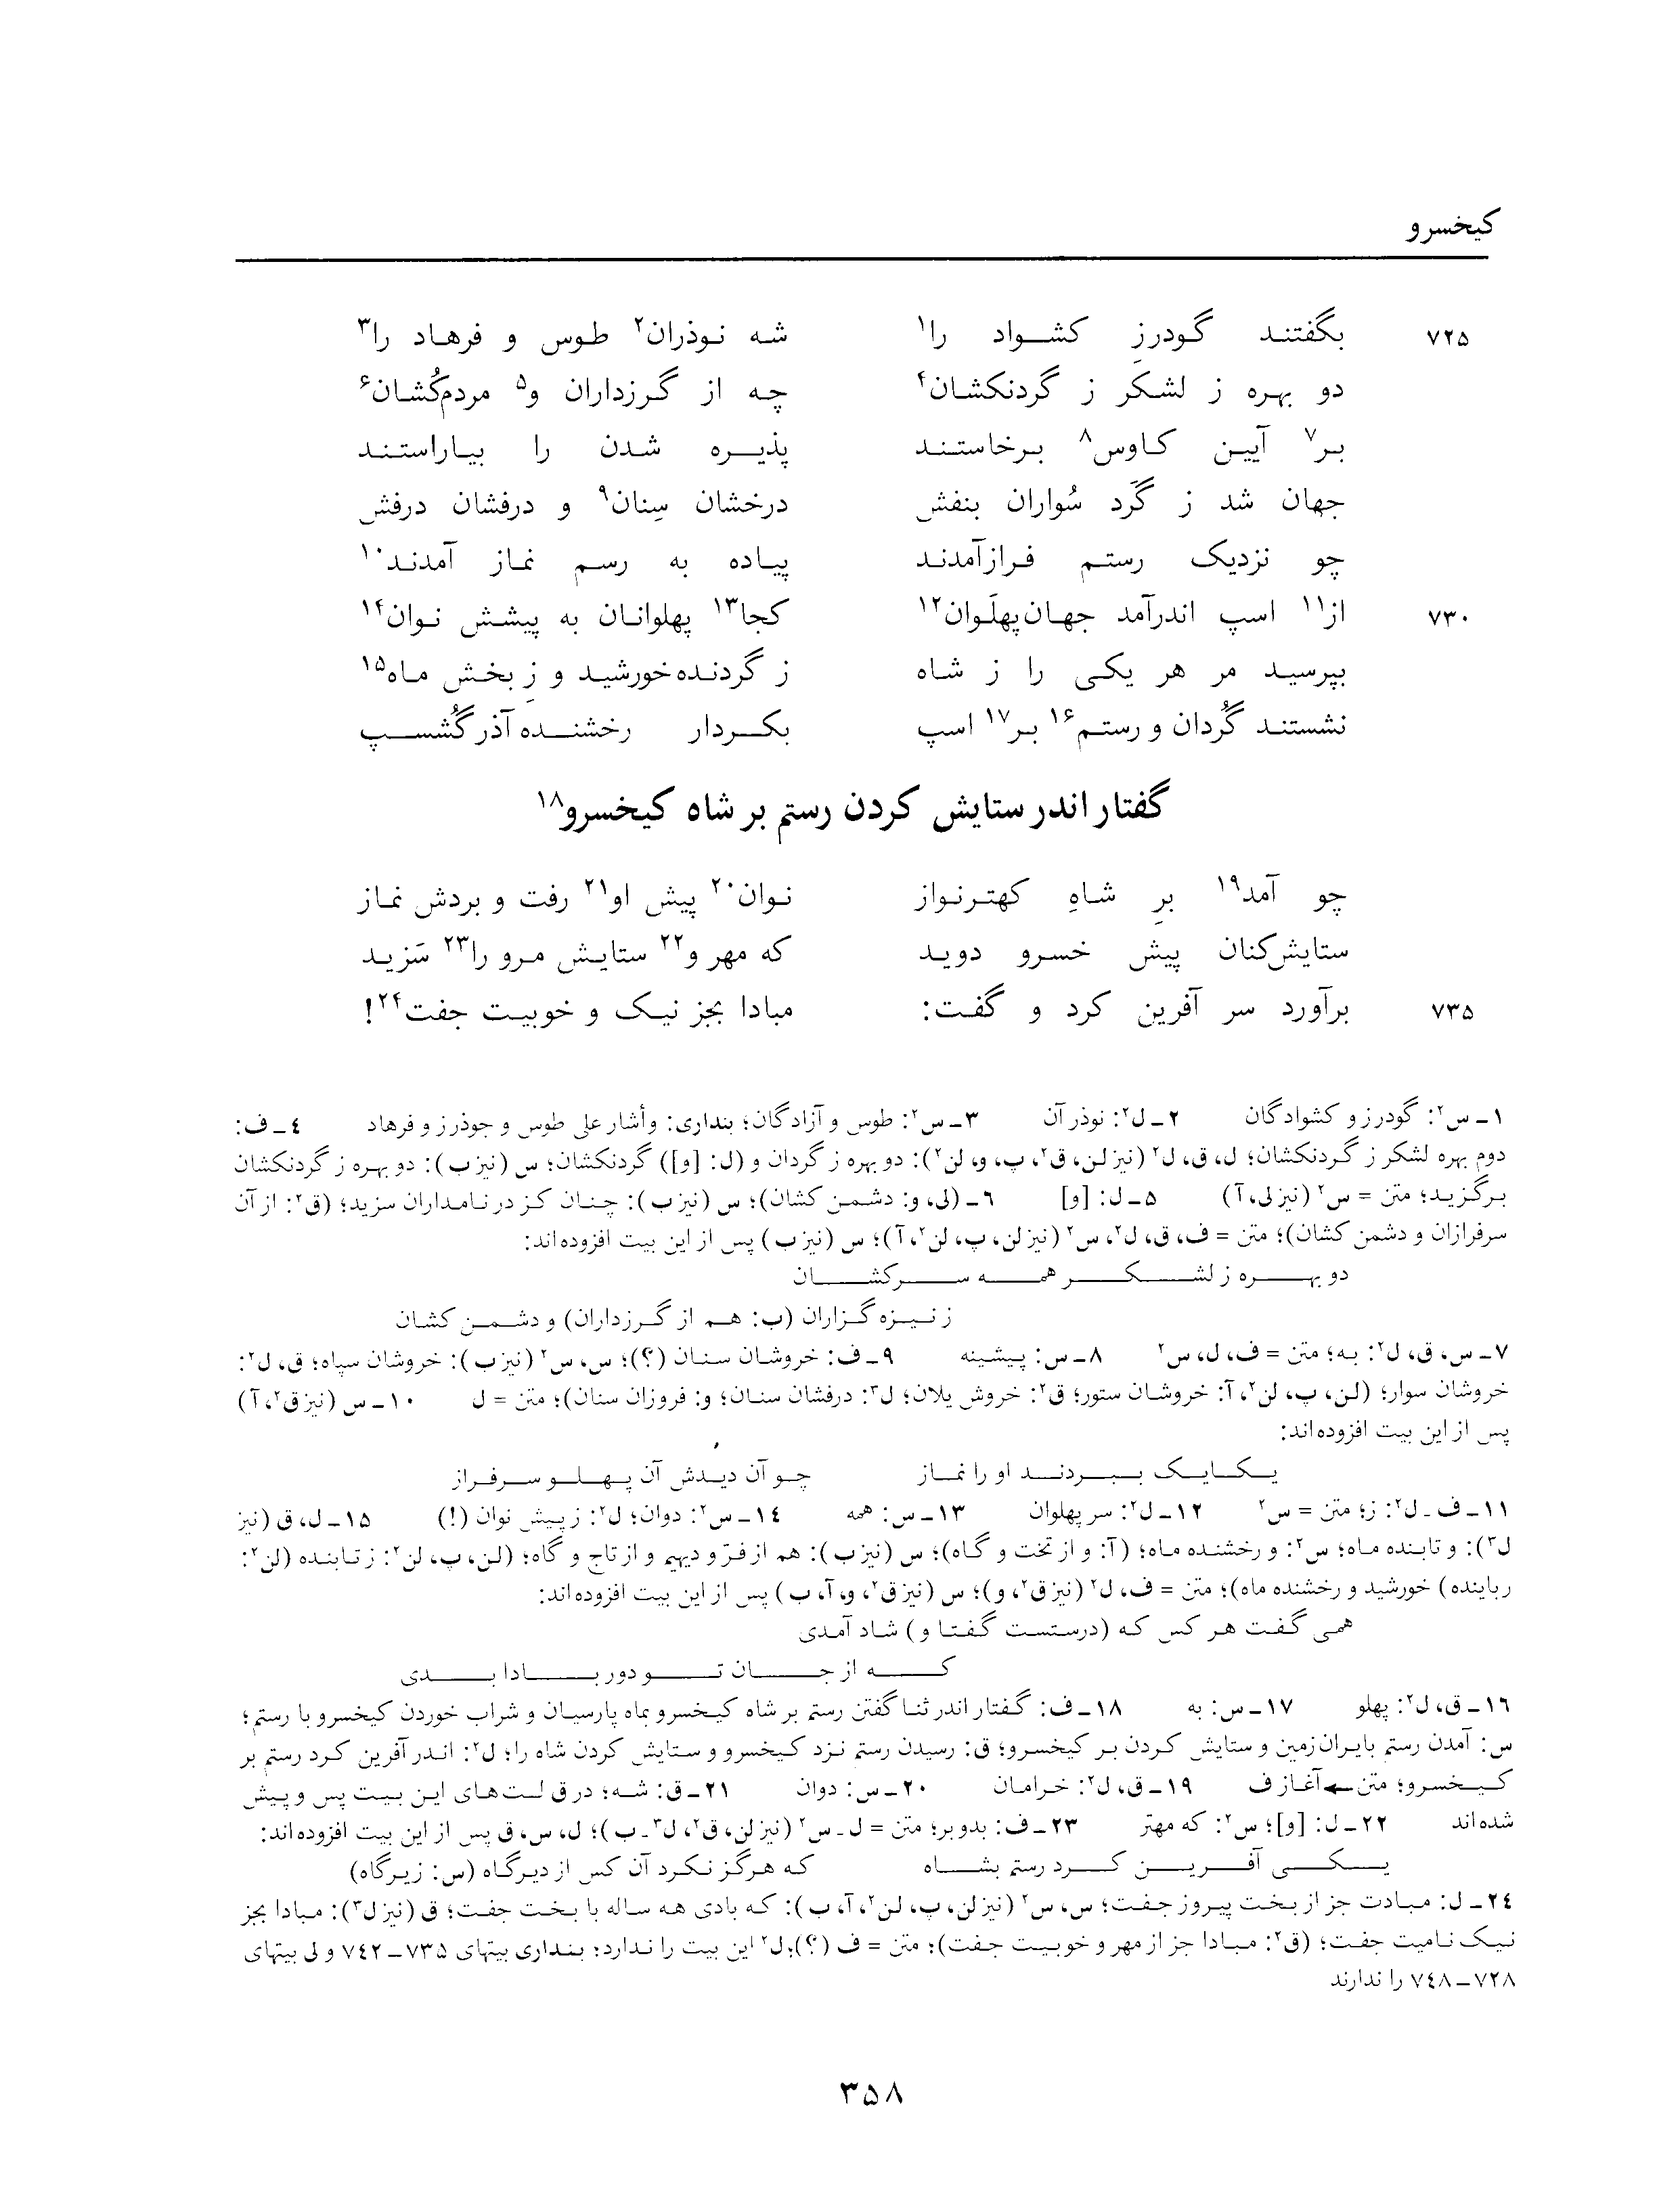 کیخسرو
۷۲۵ بگفتند گودرزِ کشواد را۱ شه نوذران۲ طوس و فرهاد را۳
دو بهره ز لشکر ز گردنکشان۴ چه از گرزداران و۵ مردم‌کُشان۶
بر۷ آیین کاوس۸ برخاستند پذیره شدن را بیاراستند
جهان شد ز گَرد سُواران بنفش درخشان سِنان۹ و درفشان درفش
چو نزدیک رستم فرازآمدند پیاده به رسم نماز آمدند۱۰
۷۳۰ از۱۱ اسپ اندرآمد جهان‌پهلَوان۱۲ کجا۱۳ پهلوانان به پیشش نوان۱۴
بپرسید مر هر یکی را ز شاه ز گردنده‌خورشید و زِ بخش ماه۱۵
نشستند گُردان و رستم۱۶ بر۱۷ اسپ بکردار رخشنده آذرگُشسپ
گفتار اندر ستایش کردن رستم بر شاه کیخسرو۱۸
چو آمد۱۹ برِ شاهِ کهترنواز نوان۲۰ پیش او۲۱ رفت و بردش نماز
ستایش‌کنان پیش خسرو دوید که مهر و۲۲ ستایش مرو را۲۳ سَزید
۷۳۵ برآورد سر آفرین کرد و گفت: مبادا بجز نیک و خوبیت جفت۲۴!
۱ـ س۲: گودرز و کشوادگان ۲ـ ل۲: نوذر آن ۳ـ س۲: طوس و آزادگان؛ بنداری: وأشار علی طوس و جوذرز و فرهاد ٤ـ ف:
دوم بهره لشکر ز گردنکشان؛ ل، ق، ل۲ (نیز لن، ق۲، پ، و، لن۲): دو بهره ز گردان و (ل: [و]) گردنکشان؛ س (نیز ب): دو بهره ز گردنکشان
برگزید؛ متن = س۲ (نیز لی، آ) ۵ـ ل: [و] ٦ـ (لی، و: دشمن کشان)؛ س (نیز ب): چنان کز در نامداران سزید؛ (ق۲: از آن
سرفرازان و دشمن کشان)؛ متن = ف، ق، ل۲، س۲ (نیز لن، پ، لن۲، آ)؛ س (نیز ب) پس از این بیت افزوده‌اند:
دو بهره ز لشکر همه سرکشان
ز نیزه گزاران (ب: هم از گرزداران) و دشمن کشان
۷ـ س، ق، ل۲: به؛ متن = ف، ل، س۲ ۸ـ س: پیشینه ۹ـ ف: خروشان سنان (؟)؛ س، س۲ (نیز ب): خروشان سپاه؛ ق، ل۲:
خروشان سوار؛ (لن، پ، لن۲، آ: خروشان ستور؛ ق۲: خروش یلان؛ ل۳: درفشان سنان؛ و: فروزان سنان)؛ متن = ل ۱۰ـ س (نیز ق۲، آ)
پس از این بیت افزوده‌اند:
یکایک ببردند او را نماز چو آن دیدش آن پهلو سرفراز
۱۱ـ ف ـ ل۲: ز؛ متن = س۲ ۱۲ـ ل۲: سر پهلوان ۱۳ـ س: همه ۱٤ـ س۲: دوان؛ ل۲: ز پیش نوان (!) ۱۵ـ ل، ق (نیز
ل۳): و تابنده ماه؛ س۲: و رخشنده ماه؛ (آ: و از تخت و گاه)؛ س (نیز ب): هم از فرّ و دیهیم و از تاج و گاه؛ (لن، پ، لن۲: ز تابنده (لن۲:
رباینده) خورشید و رخشنده ماه)؛ متن = ف، ل۲ (نیز ق۲، و)؛ س (نیز ق۲، و، آ، ب) پس از این بیت افزوده‌اند:
همی گفت هر کس که (درستست گفتا و) شاد آمدی
که از جان تو دور بادا بدی
۱٦ـ ق، ل۲: پهلو ۱۷ـ س: به ۱۸ـ ف: گفتار اندر ثنا گفتن رستم بر شاه کیخسرو بماه پارسیان و شراب خوردن کیخسرو با رستم؛
س: آمدن رستم بایران زمین و ستایش کردن بر کیخسرو؛ ق: رسیدن رستم نزد کیخسرو و ستایش کردن شاه را؛ ل۲: اندر آفرین کرد رستم بر
کیخسرو؛ متن ← آغاز ف ۱۹ـ ق، ل۲: خرامان ۲۰ـ س: دوان ۲۱ـ ق: شه؛ در ق لت‌های این بیت پس و پیش
شده‌اند ۲۲ـ ل: [و]؛ س۲: که مهتر ۲۳ـ ف: بدو بر؛ متن = ل ـ س۲ (نیز لن، ق۲، ل۳ ـ ب)؛ ل، س، ق پس از این بیت افزوده‌اند:
یکی آفرین کرد رستم بشاه که هرگز نکرد آن کس از دیرگاه (س: زیرگاه)
۲٤ـ ل: مبادت جز از بخت پیروز جفت؛ س، س۲ (نیز لن، پ، لن۲، آ، ب): که بادی همه ساله با بخت جفت؛ ق (نیز ل۳): مبادا بجز
نیک نامیت جفت؛ (ق۲: مبادا جز از مهر و خوبیت جفت)؛ متن = ف (؟)؛ ل۲ این بیت را ندارد؛ بنداری بیتهای ۷۳۵ـ۷٤۲ و لی بیتهای
۷۲۸ـ۷٤۸ را ندارند
۳۵۸